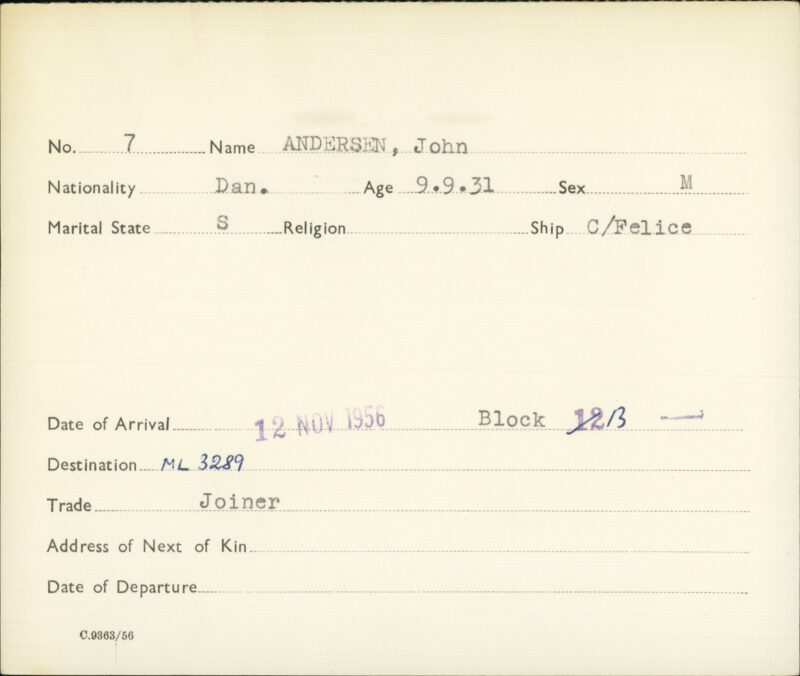 No. 7 Name ANDERSEN, John
Nationality Dan. Age 9.9.31 Sex M
Marital State S Religion Ship C/Felice
Date of Arrival 12 NOV 1956 Block 12 13 —
Destination ML 3289
Trade Joiner
Address of Next of Kin
Date of Departure
C.9363/56